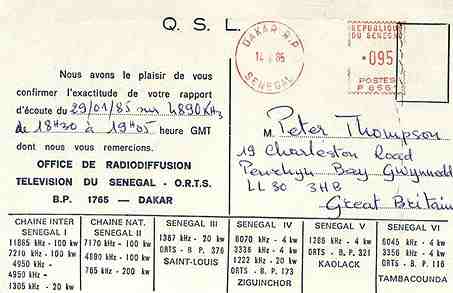 Q. S. L.
DAKAR R.P.
14 85
SENEGAL
REPUBLIQUE
DU SENEGAL
*095
POSTES
Nous avons le plaisir de vous
confirmer l'exactitude de votre rapport
d'écoute du 29/01/85 sur 4890 KHz
de 18H30 à 19H05 heure GMT
dont nous vous remercions.
OFFICE DE RADIODIFFUSION
TELEVISION DU SENEGAL - O.R.T.S.
B.P. 1765 — DAKAR
M. Peter Thompson
19 Charleston Road
Penrhyn Bay Gwynnedd
LL 30 3HB
Great Britain
CHAINE INTER
SENEGAL I
11895 kHz - 100 kw
7210 kHz - 100 kw
4950 kHz -
4950 kHz -
1305 kHz - 20 kw
CHAINE NAT.
SENEGAL II
7170 kHz - 100 kw
4890 kHz - 100 kw
765 kHz - 200 kw
SENEGAL III
1367 kHz - 20 kw
ORTS - B.P. 376
SAINT-LOUIS
SENEGAL IV
6070 kHz - 4 kw
3336 kHz - 4 kw
1222 kHz - 20 kw
ORTS - B.P. 173
ZIGUINCHOR
SENEGAL V
1286 kHz - 4 kw
ORTS - B.P. 321
KAOLACK
SENEGAL VI
6045 kHz - 4 kw
3356 kHz - 4 kw
ORTS - B.P. 116
TAMBACOUNDA